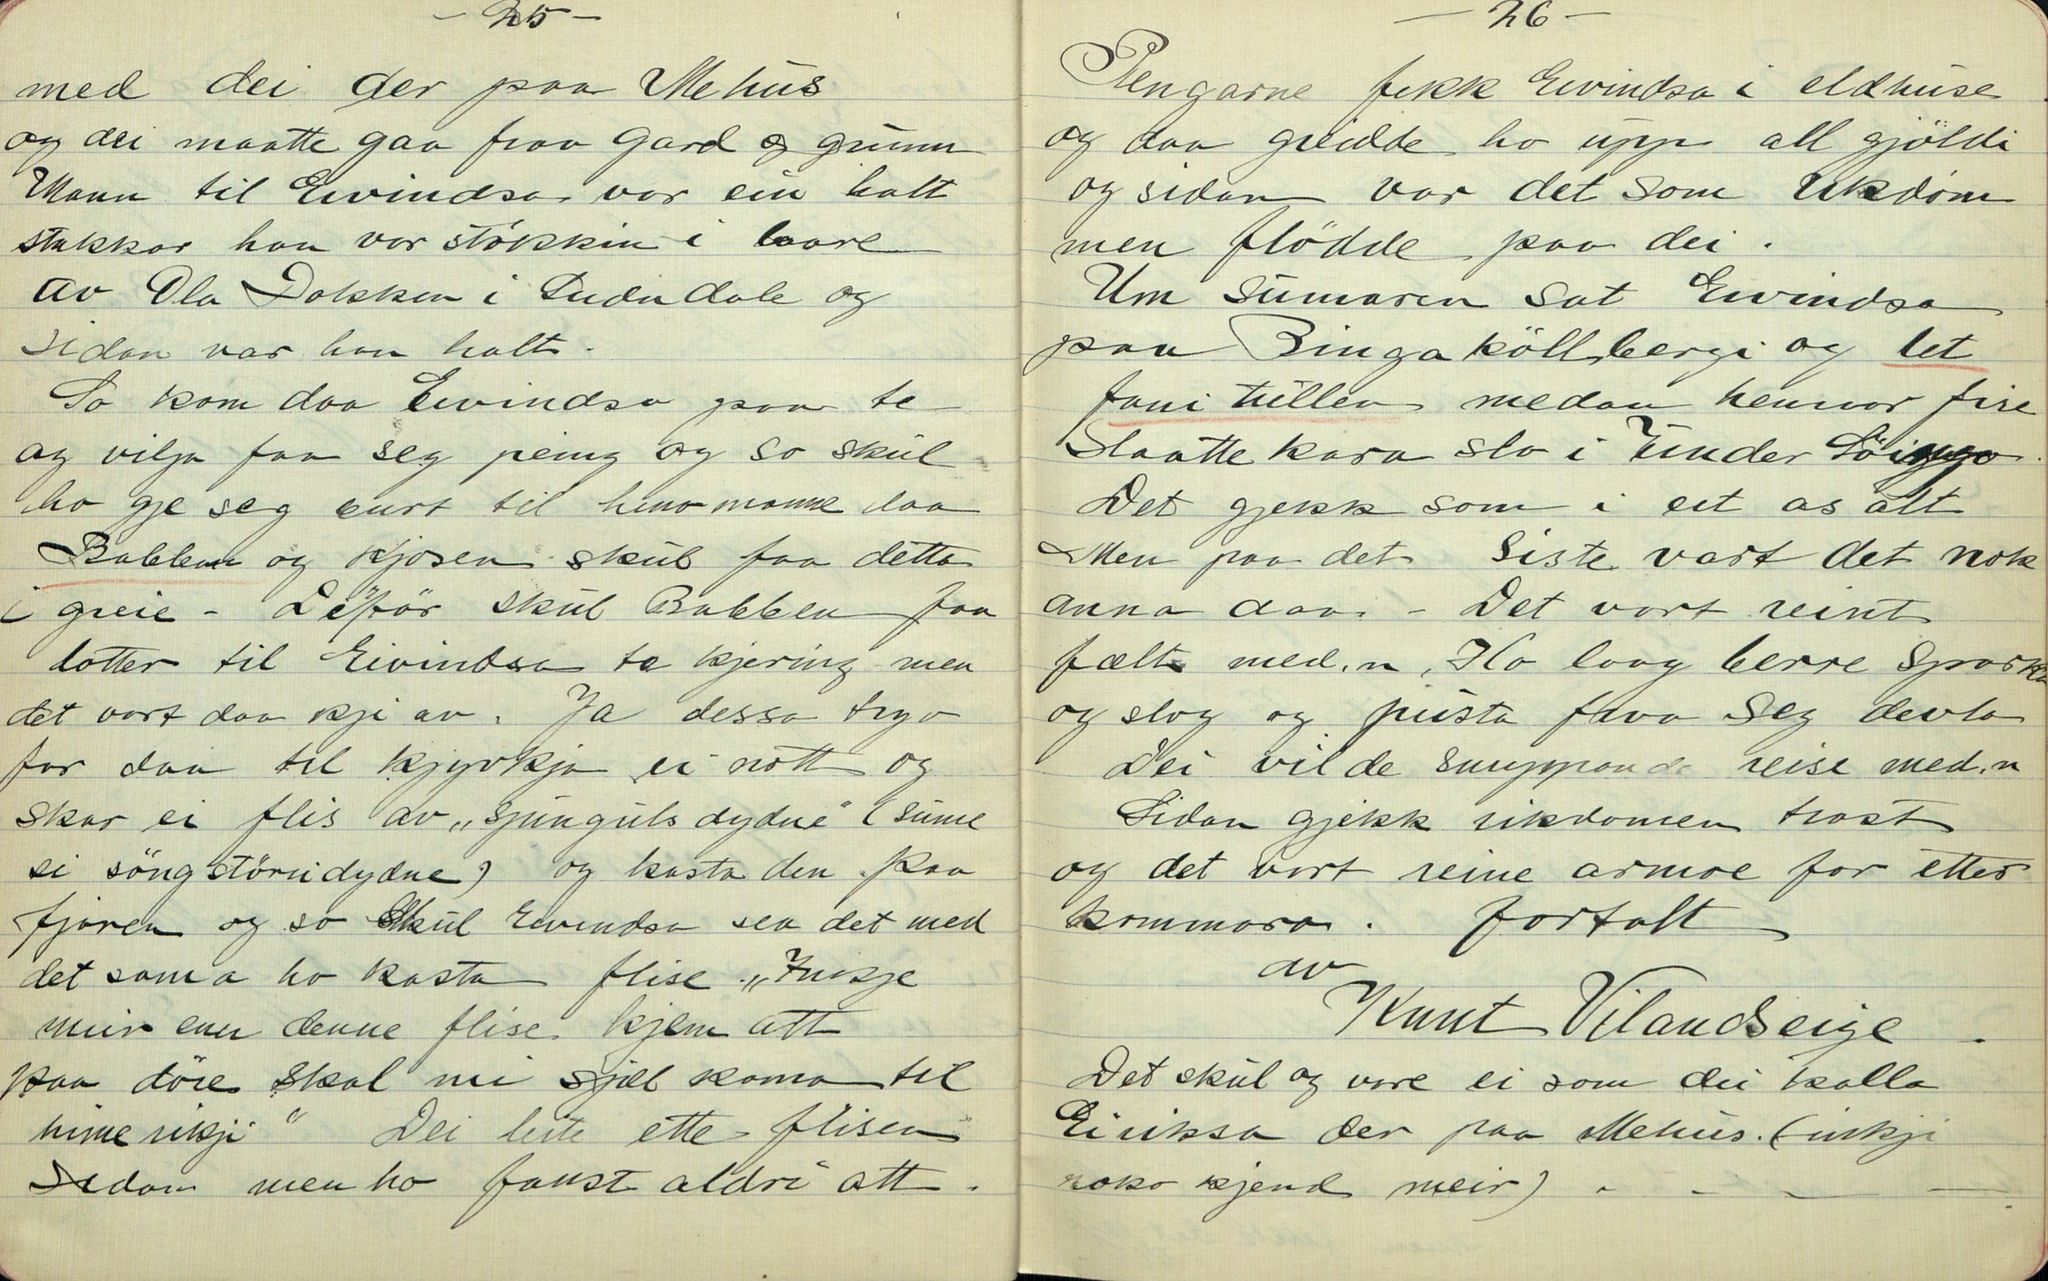 - 25 -
med dei der paa Mehus
og dei maatte gaa fraa gard og grunn
Mann til Eivindsa var ein halt
stakkar han var stökkin i laare
av Ola Dokken i Sudndale og
sidan var han halt.
So kom daa Eivindsa paa te
og vilja faa seg peing og so skul
ho gje seg burt til hinomanne daa
Babben og Kjosen skul faa detta
i greie - Diför skul Babben faa
dotter til Eivindsa te kjering men
det vart daa kji av. Ja dessa tryo
for daa til kjyrkja ei nott og
skar ei flis av „sjunguls dydne" (sume
si söngstörudydne) og kasta den paa
fjoren og so skul Eivindsa sea det med
det sama ho kasta flise. „Inkje
meir enn denne flise kjem att
paa döre skal mi sjæl koma til
himerikji" Dei leite ette flisen
Sidan men ho fanst aldri att.
- 26 -
Pengarne fekk Eivindsa i eldhuse
og daa greidde ho upp all gjöldi
og sidan var det som rikdom
men flödde paa dei.
Um sumaren sat Eivindsa
paa Bingaköllbergi og let
fani tullen medan hennar fire
slaattekara slo i Under
Det gjekk som i eit as alt
Men paa det siste vart det nok
anna daa. - Det vart reint
fælt med.n, Ho laag berre sparka
og slog og pusta fraa seg devla
Dei vilde snuppande reise med.n
Sidan gjekk rikdomen trast
og det vart reine armoe for etter
kommara. fortalt
av
Knut Vilandseige.
Det skul og vore ei som dei kalla
Eiriksa der paa Mehus. (inkji
noko kjend meir) . - - -